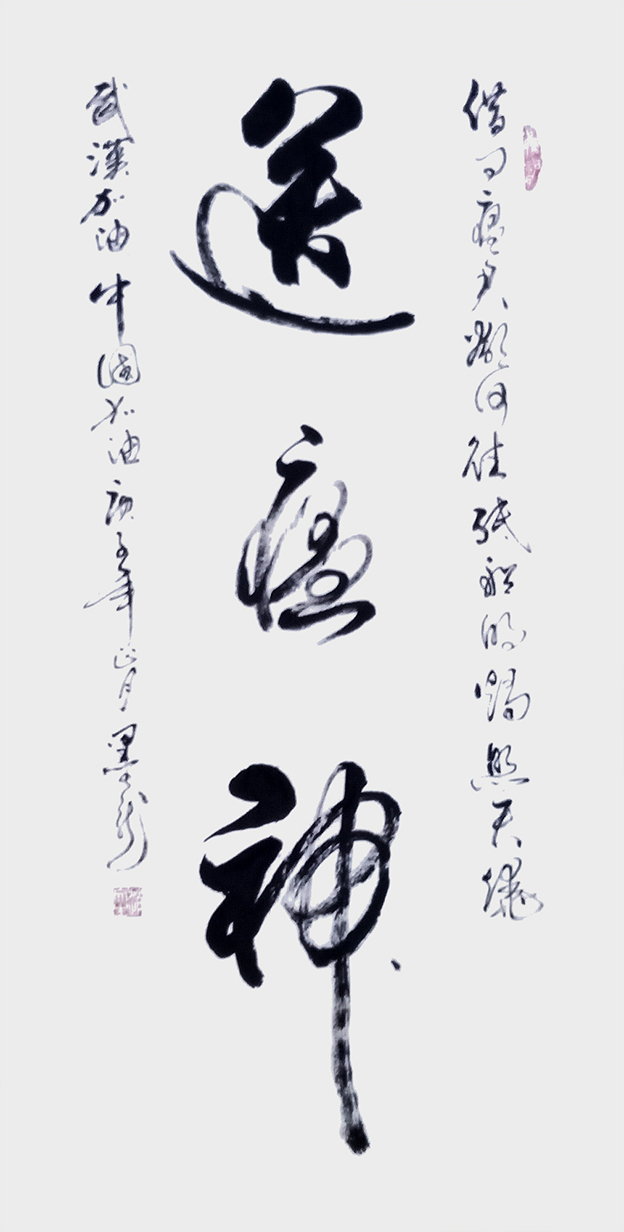 借问瘟君欲何往纸船明烛照天烧
送瘟神
武漢加油中國加油庚子年正月